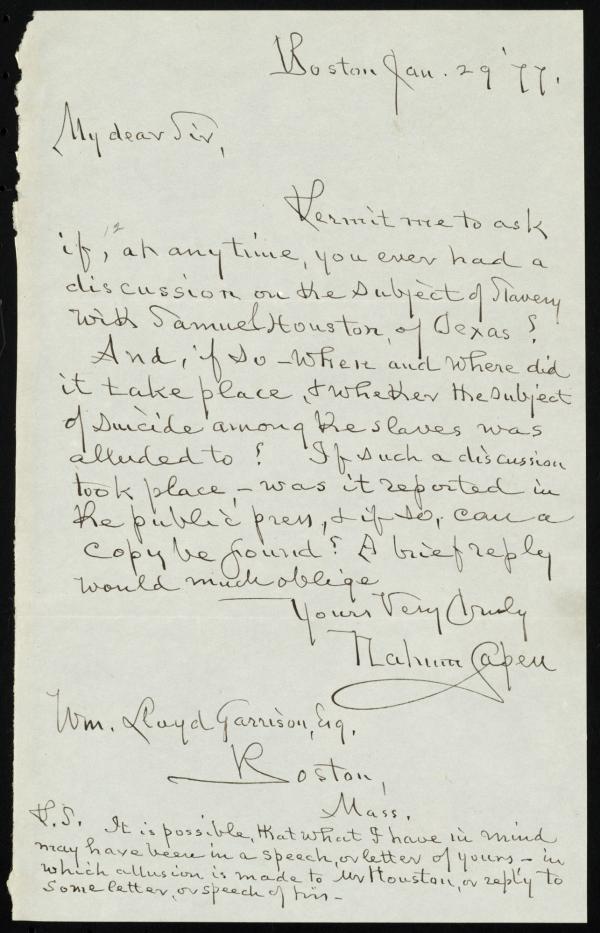 Boston Jan. 29 '77.
My dear Sir,
Permit me to ask
if, at any time, you ever had a
discussion on the subject of Slavery
with Samuel Houston, of Texas?
And, if so - when and where did
it take place, & whether the subject
of suicide among the slaves was
alluded to? If such a discussion
took place, - was it reported in
the public press, & if so, can a
copy be found? A brief reply
would much oblige
Yours Very Truly
Nahum Capen
Wm. Lloyd Garrison, Esq.
Boston,
Mass.
P.S. It is possible, that what I have in mind
may have been in a speech, or letter of yours - in
which allusion is made to Mr Houston, or reply to
some letter, or speech of his -